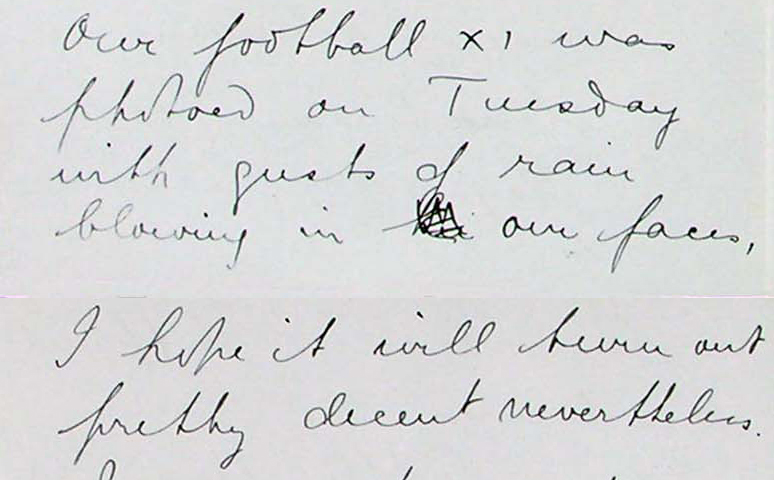 Our football X1 was
photoed on Tuesday
with gusts of rain
blowing in our faces,
I hope it will turn out
pretty decent nevertheless.